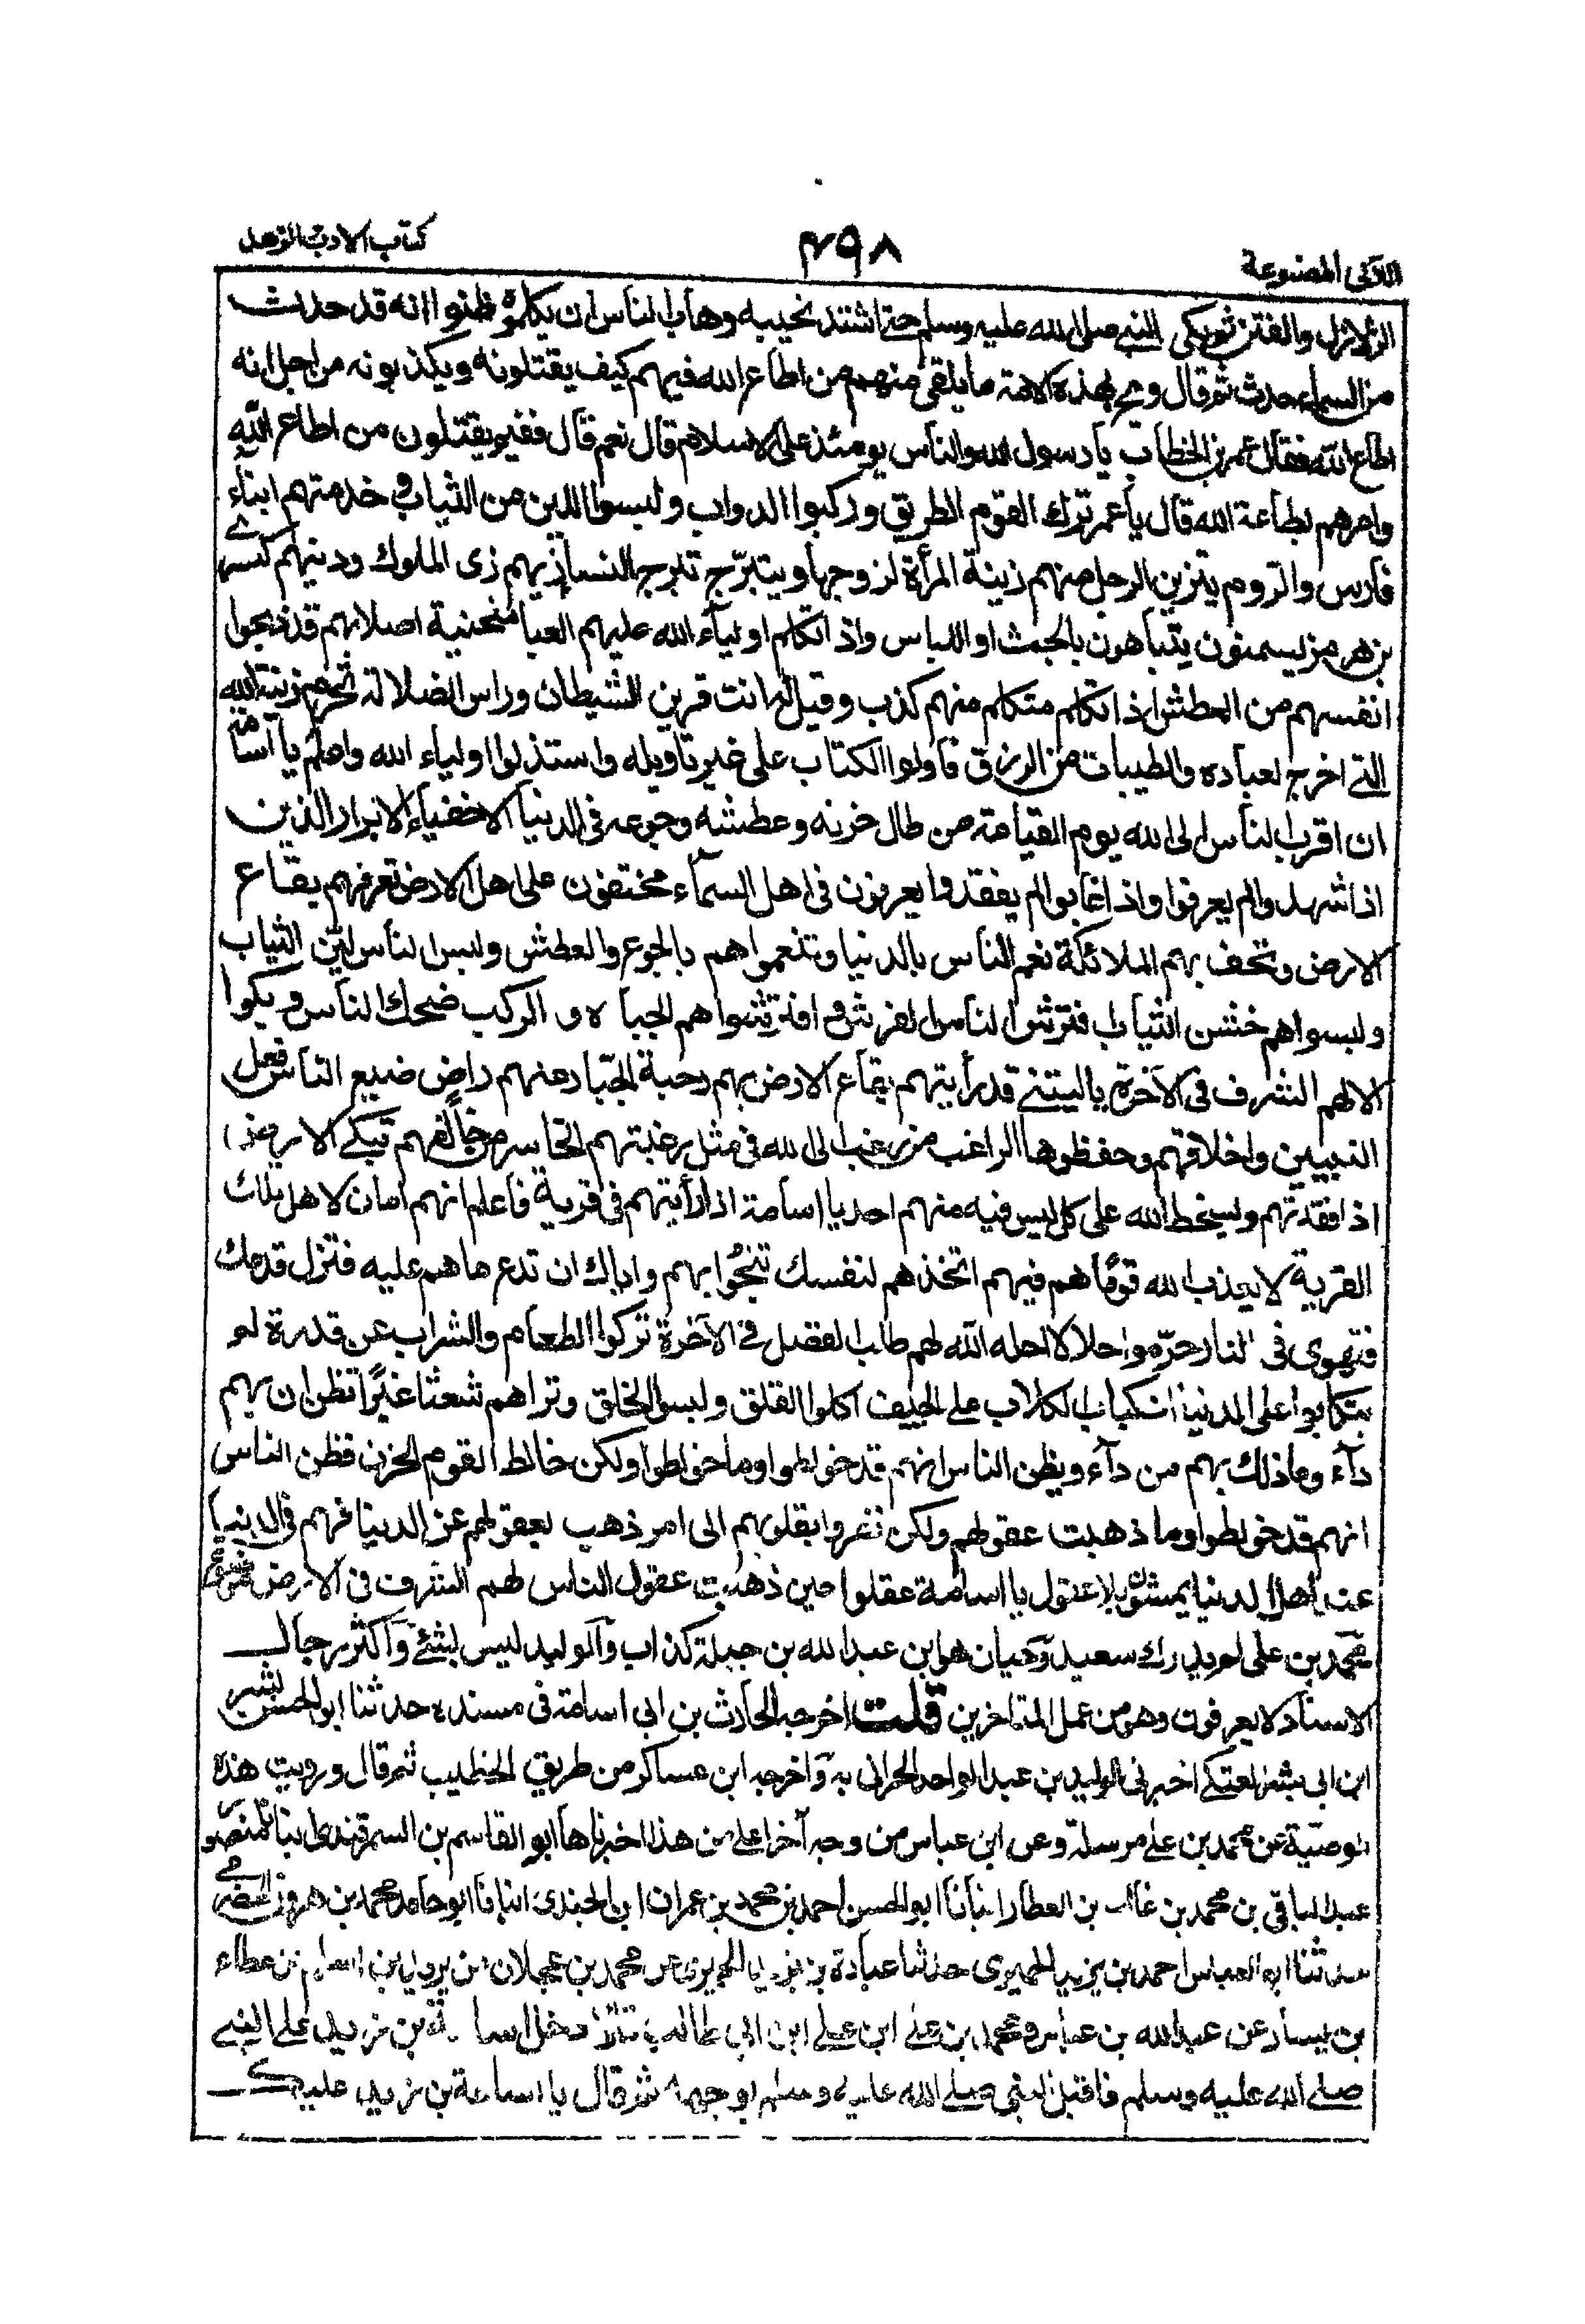 اللآلئ المصنوعة
٤٩٨
كتاب الادب والزهد
الزلازل والفتن ثم بكى النبي صلى الله عليه وسلم حتى اشتد نحيبه وهاب الناس ان يكلموه فظنوا انه قد حدث
من السماء حدث ثم قال ويح لهذه الامة ما يلقى منهم من اطاع الله فيهم كيف يقتلونه ويكذبونه من اجل انه
اطاع الله فقال عمر بن الخطاب يا رسول الله والناس يومئذ على الاسلام قال نعم قال ففيم يقتلون من اطاع الله
وامرهم بطاعة الله قال يا عمر ترك القوم الطريق وركبوا الدواب ولبسوا اللين من الثياب وخدمتهم ابناء
فارس والروم يتزين الرجل منهم زينة المرأة لزوجها ويتبرج تبرج النساء زيهم زى الملوك ودينهم كسرى
بن هرمز يسمنون يتباهون بالجشا واللباس واذا تكلم اولياء الله عليهم العبا منحنية اصلابهم قد ذبحوا
انفسهم من العطش اذا تكلم متكلم منهم كذب وقيل له انت قرين الشيطان وراس الضلالة تحرم زينة الله
التي اخرج لعباده والطيبات من الرزق فاولوا الكتاب على غير تاويله واستذلوا اولياء الله واعلم يا اسامة
ان اقرب الناس الى الله يوم القيامة من طال حزنه وعطشه وجوعه فى الدنيا الاخفياء الابرار الذين
اذا شهدوا لم يعرفوا واذا غابوا لم يفقدوا يعرفون فى اهل السماء مختفون على اهل الارض تعرفهم بقاع
الارض وتحف بهم الملائكة نعم الناس بالدنيا وتنعموا هم بالجوع والعطش ولبس الناس لين الثياب
ولبسوا هم خشن الثياب افترش الناس الفرش وافترشوا هم الجباه والركب ضحك الناس وبكوا
الا لهم الشرف فى الآخرة يا ليتني قد رأيتهم بقاع الارض بهم رحبة الجبار عنهم راض ضيع الناس فعل
النبيين واخلاقهم وحفظوها الراغب من رغب الى الله فى مثل رغبتهم الخاسر من خالفهم تبكى الارض
اذا فقدتهم ويسخط الله على كل ليس فيه منهم احد يا اسامة اذا رأيتهم فى قرية فاعلم انهم امان لاهل تلك
القرية لا يعذب الله قوما هم فيهم اتخذهم لنفسك تنجو بهم واياك ان تدع ما هم عليه فتزل قدمك
فتهوى فى النار حرموا حلالا احله الله لهم طلب الفضل في الآخرة تركوا الطعام والشراب عن قدرة لم
يتكابوا على الدنيا انكباب الكلاب على الجيف اكلوا الفلق ولبسوا الخلق وتراهم شعثا غبرا تظن ان بهم
دآء وما ذلك بهم من دآء ويظن الناس انهم قد خولطوا وما خولطوا ولكن خالط القوم الحزن فظن الناس
انهم قد خولطوا وما ذهبت عقولهم ولكن نظروا بقلوبهم الى امر ذهب بعقولهم عن الدنيا فهم فى الدنيا
عند اهل الدنيا يمشون بلا عقول يا اسامة عقلوا حين ذهبت عقول الناس لهم الشرف فى الارض
محمد بن على لم يدرك سعيد وحبان هو ابن عبد الله بن جبلة كذاب والوليد ليس بشئ وأكثر رجال
الاسناد لا يعرفون وهو من عمل المتاخرين قلت اخرجه الحارث بن ابى اسامة فى مسنده حدثنا ابو الحسن بشر
ابن ابى بشر العتكى اخبرنى الوليد بن عبد الواحد الحرانى به واخرجه ابن عساكر من طريق الخطيب ثم قال ورويت هذه
الوصية عن محمد بن على مرسلة وعن ابن عباس من وجه آخر اعلى من هذا اخبرناها ابو القاسم بن السمرقندى انبانا ابو منصور
عبد الباقى بن محمد بن غالب بن العطار انبأنا ابو الحسن احمد بن محمد بن عمران ابن الجندى انبانا ابو حامد محمد بن هرون الحضرمي
حدثنا ابو العباس احمد بن يزيد الحميرى حدثنا عبادة بن يزيد الحميرى عن محمد بن عجلان عن زيد بن اسلم عن عطاء
بن يسار عن عبد الله بن عباس ومحمد بن على ابن على ابن ابى طالب قالا دخل اسامة بن زيد على النبي
صلى الله عليه وسلم فاقبل النبي صلى الله عليه وسلم بوجهه ثم قال يا اسامة بن زيد عليك